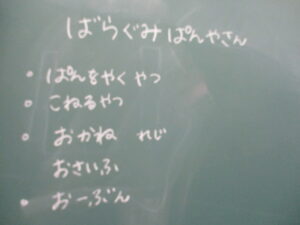 ばらぐみ ぱんやさん
• ぱんをやくやつ
• こねるやつ
• おかね れじ
おさいふ
• おーぶん